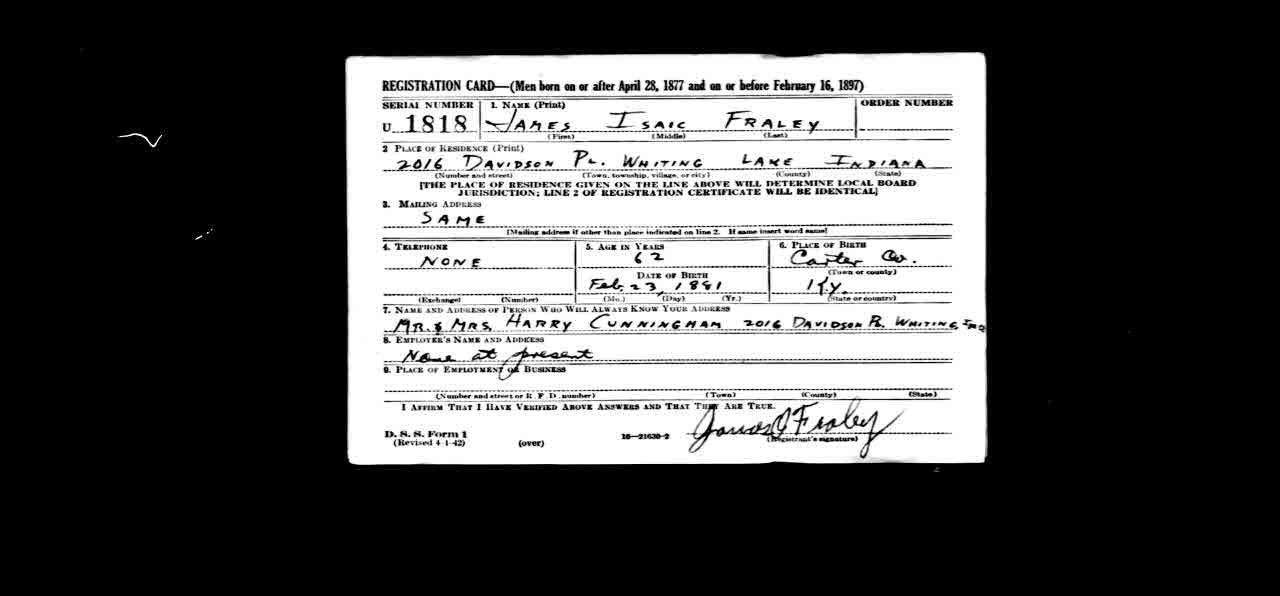 REGISTRATION CARD—(Men born on or after April 28, 1877 and on or before February 16, 1897)
SERIAL NUMBER 1. NAME (Print) ORDER NUMBER
U 1818 JAMES ISAIC FRALEY
(First) (Middle) (Last)
2 PLACE OF RESIDENCE (Print)
2016 DAVIDSON PL. WHITING LAKE INDIANA
(Number and street) (Town, township, village, or city) (County) (State)
[THE PLACE OF RESIDENCE GIVEN ON THE LINE ABOVE WILL DETERMINE LOCAL BOARD
JURISDICTION; LINE 2 OF REGISTRATION CERTIFICATE WILL BE IDENTICAL]
3. MAILING ADDRESS
SAME
[Mailing address if other than place indicated on line 2. If same insert word same]
4. TELEPHONE 5. AGE IN YEARS 6. PLACE OF BIRTH
NONE 62 Carter Co.
DATE OF BIRTH (Town or county)
Feb. 23, 1881 Ky.
(Exchange) (Number) (Mo.) (Day) (Yr.) (State or country)
7. NAME AND ADDRESS OF PERSON WHO WILL ALWAYS KNOW YOUR ADDRESS
MR. & MRS. HARRY CUNNINGHAM 2016 DAVIDSON PL. WHITING, IND
8. EMPLOYER'S NAME AND ADDRESS
None at present
9. PLACE OF EMPLOYMENT OR BUSINESS
(Number and street or R. F. D. number) (Town) (County) (State)
I AFFIRM THAT I HAVE VERIFIED ABOVE ANSWERS AND THAT THEY ARE TRUE.
James I Fraley
D. S. S. Form 1
(Revised 4-1-42) (over) 16—21630-2 (Registrant's signature)